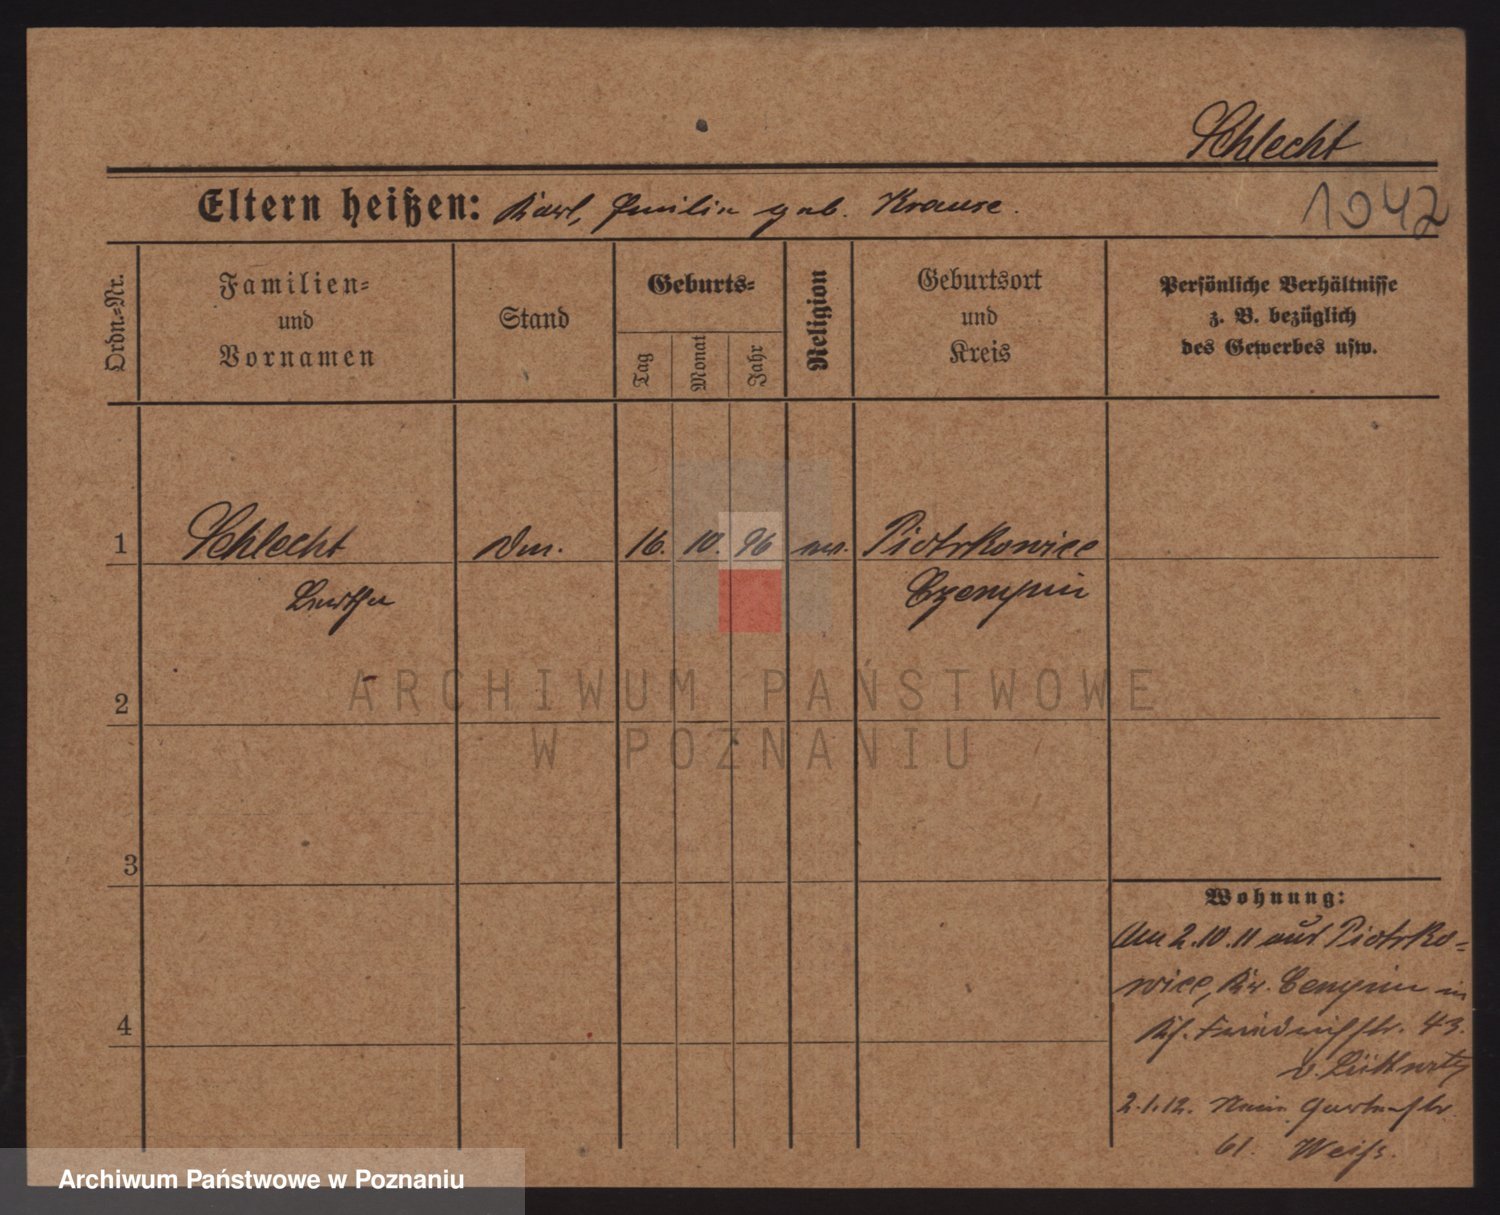 Schlecht
Eltern heißen: Karl, Emilie geb. Krause.
1042
Ordn.-Nr.
Familien-
und
Vornamen
Stand
Geburts-
Tag
Monat
Jahr
Religion
Geburtsort
und
Kreis
Persönliche Verhältnisse
z. B. bezüglich
des Gewerbes usw.
1 Schlecht 16. 10. 96 ev. Piotrkowice
Bertha Czempin
2
ARCHIWUM PAŃSTWOWE
W POZNANIU
3
Wohnung:
Am 2.10.11 aus Piotrko-
wice, Kr. Cempin in
Friedrichstr. 43.
v. Lüttwitz
2.1.12. Gartenstr.
61. Weiß.
4
Archiwum Państwowe w Poznaniu